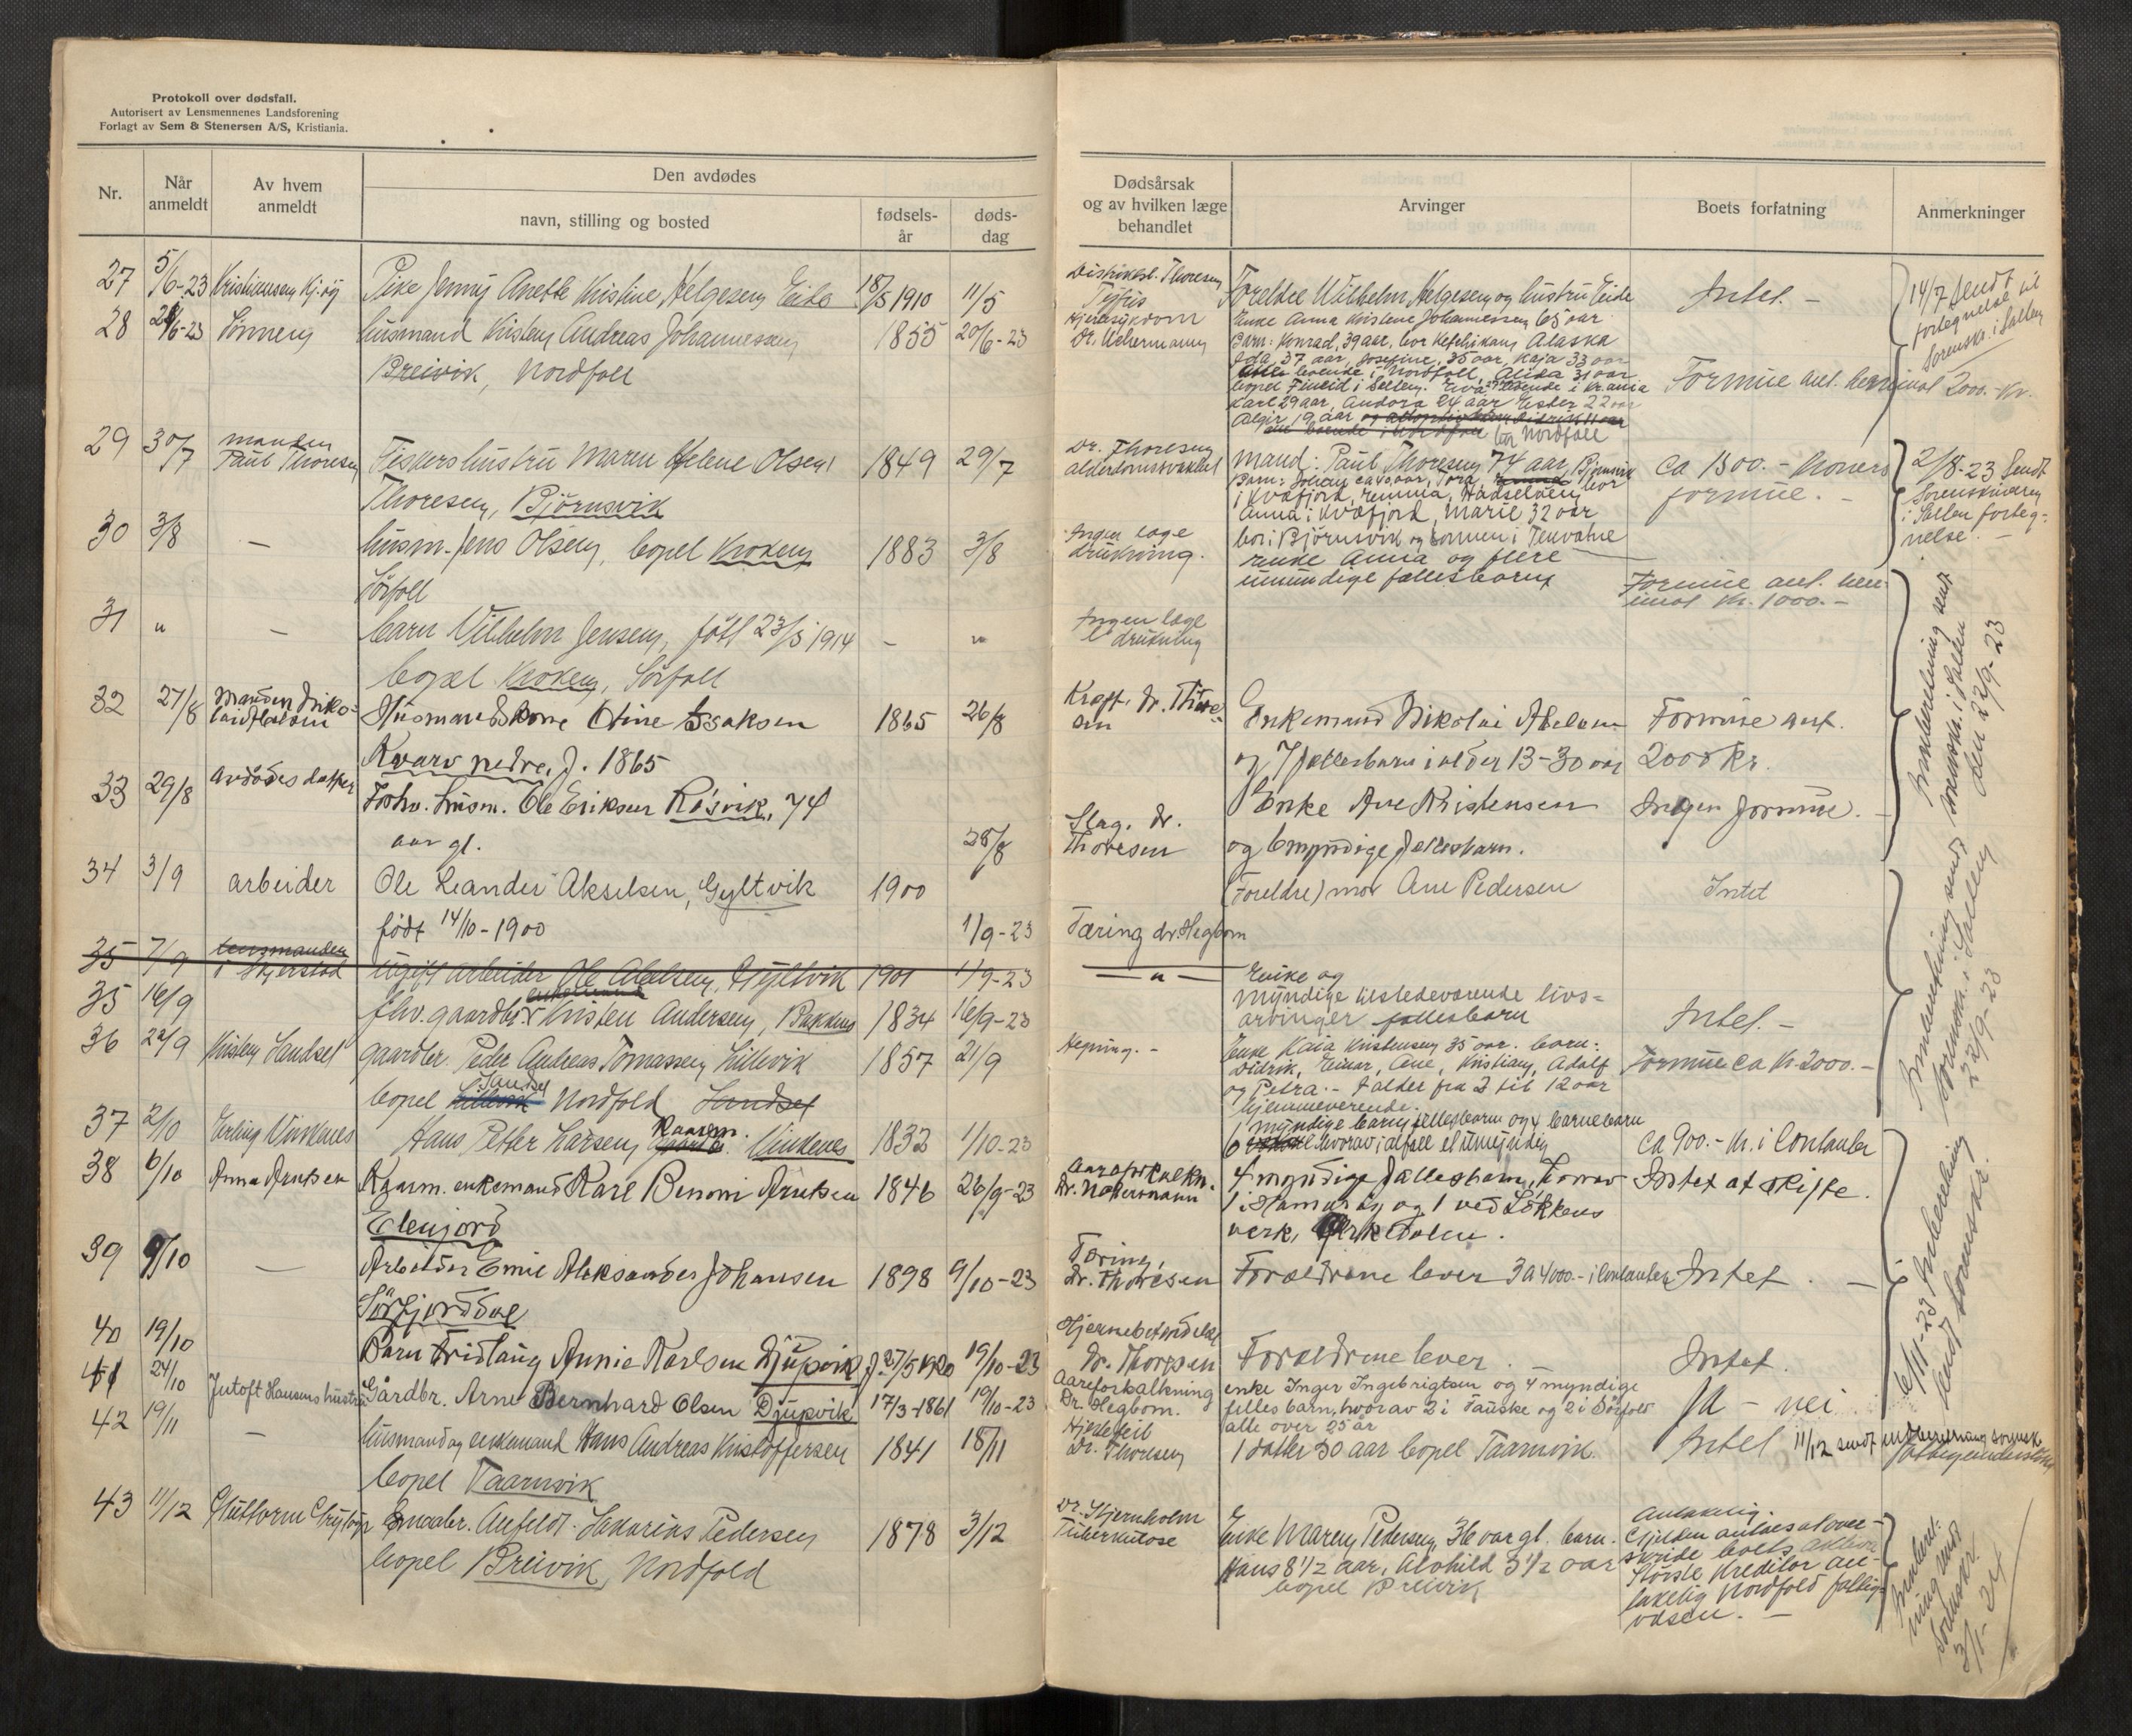 Protokoll over dødsfall.
Autorisert av Lensmennenes Landsforening
Forlagt av Sem & Stenersen A/S, Kristiania.
Nr.
Når anmeldt
Av hvem anmeldt
Den avdødes
navn, stilling og bosted
fødsels-år
døds-dag
27 5/6-23 Kristiansen Pike Jenny Anette Kristine Helgesen Eide 18/5 1910 11/5
28 /6-23 Sønnen husmand Kristen Andreas Johannessen 1855 20/6-23
Breivik, Nordfold
29 30/7 manden
Paul Thoresen Fiskershustru Maren Helene Olsen 1849 29/7
Thoresen, Björnsvik
30 3/8 — husm. Jens Olsen, bopel Kroken 1883 3/8
Sörfold
31 " — barn Vilhelm Jensen, født 23/5 1914 — "
bopel Kroken, Sörfold
32 27/8 Manden Niko-
lai Abelsen Husmandskone Oline Isaksen 1865 26/8
Kvarv nedre, f. 1865
33 29/8 Avdödes datter Forhv. husm. Ole Eriksen Rösvik, 74
aar gl. 28/8
34 3/9 arbeider Ole Leander Akselsen, Gyltvik 1900
født 14/10-1900 1/9-23
35 7/9 lensmanden
i Skjerstad ugift arbeider Ole Abelsen, Gyltvik 1901 1/9-23
enkemand
35 16/9 fhv. gaardbr. Kristen Andersen, Bakken 1834 16/9-23
36 22/9 Kristen Sandset gaardbr. Peder Andreas Tomassen Lillevik 1857 21/9
Sandset
bopel Lillevik Nordfold Sandset
37 2/10 Erling Vinkenes Hans Petter Larsen Kaarm. Vinkenes 1832 1/10-23
38 6/10 Anna Arntsen Kaarm. enkemand Karl Benoni Arntsen 1846 26/9-23
Elenjord
39 9/10 — Arbeider Emil Aleksander Johansen 1898 9/10-23
Sörfjorddal
40 19/10 Barn Fridtaug Annie Karlsen Djupvik f. 27/5 1920 19/10-23
41 24/10 Jutoft Hansens hustru Gårdbr. Arne Bernhard Olsen Djupvik 17/3-1861 19/10-23
42 19/11 — husmand og enkemand Hans Andreas Kristoffersen 1841 18/11
bopel Taarnvik
43 11/12 Smaabr. Anfeldt Sakarias Pedersen 1878 3/12
bopel Breivik, Nordfold
Dødsårsak og av hvilken læge behandlet
Arvinger
Boets forfatning
Anmerkninger
Distriktsl. Thoresen
Tyfus Foreldre Wilhelm Helgesen og hustru Eide Intet. —
14/7 sendt
fortegnelse til
Sorenskr. i Salten
Hjertesykdom
Dr. Uchermann
Enke Anna Kristene Johannessen 65 aar
Barn: Konrad, 39 aar, bor Ketchikan Alaska
Ida, 37 aar, Josefine, 35 aar, Kaja 33 aar
boende i Nordfold, Alida 31 aar
bopel Fineid i Salten.
Karl 29 aar, Andora 24 aar Ester 22 aar
19 aar
bor Nordfold
Formue ant. henimot 2000.- kr.
Dr. Thoresen
alderdomssvakhet
mand: Paul Thoresen 74 aar, Björnsvik
Barn: Johan ca 40 aar, Tora,
i Kvæfjord, Emma, Hadseløen, bor
Anna i Kvæfjord, Marie 32 aar
bor i Björnsvik og sønnen i Tennvatne
ca 1500.- kroners
formue. —
2/8-23 sendt
Sorenskriveren
i Salten forteg-
nelse. —
Ingen læge
drukning.
enke Anna og flere
umundige fællesbarn
Formue ant. hen-
imot kr. 1000.-
Ingen læge
drukning
Indberetning sendt
sorenskr. i Salten
den 22/9-23
Kræft. dr. Thore-
sen
Enkemand Nikolai Abelsen Formue anst.
og 7 fællesbarn i alder 13-30 aar 2000 Kr.
Slag. dr.
Thoresen
Enke Ane Kristensen Ingen formue.
og 6 myndige fællesbarn.
(Foreldre) mor Ane Pedersen Intet
Tæring dr. Hegbom
— " —
Enke og
myndige tilstedeværende livs-
arvinger fællesbarn Intet. —
Indberetning sendt
Sorenskr. i Salten
22/9-23
Enke Kaia Kristensen 35 aar. barn:
Didrik, Einar, Ane, Kristian, Adolf
og Petra. - I alder fra 2 til 12 aar
hjemmeverende.
Formue ca kr. 2000.-
myndige barn fællesbarn og 4 barnebarn
hvorav i alfall et umyndig
ca 900.- kr. i kontanter
Aareforkalkn.
Dr. Uchermann
4 myndige fællesbarn, hvorav
1 i Hamarøy og 1 ved Løkkens
verk, Orkedalen.
Intet at skifte.
Tæring,
Dr. Thoresen
Foreldrene lever 3 a 4000.- i kontanter Intet. —
6/11-23 Indberetning
sendt Sorenskr.
Hjernebetændelse
Dr. Thoresen
Foreldrene lever. — Intet.
Aareforkalkning
Dr. Hegbom.
enke Inger Ingebrigtsen og 4 myndige
felles barn, hvorav 2 i Fauske og 2 i Sörfold
alle over 25 år
Ja - nei
Hjertefeil
Dr. Thoresen
1 datter 30 aar bopel Taarnvik. Intet 11/12 sendt indberetning sorensk.
Dr. Stjernholm
Tuberkulose
Enke Maren Pedersen 36 aar gl. barn.
Hans 8 1/2 aar, Alvhild 3 1/2 aar
bopel Breivik
Antakelig.
Gjelden antaes at over-
skride boets aktiva
Største kreditor an-
takelig Nordfold fattig-
væsen. —
Indberet-
ning sendt
sorenskr.
3/1-24